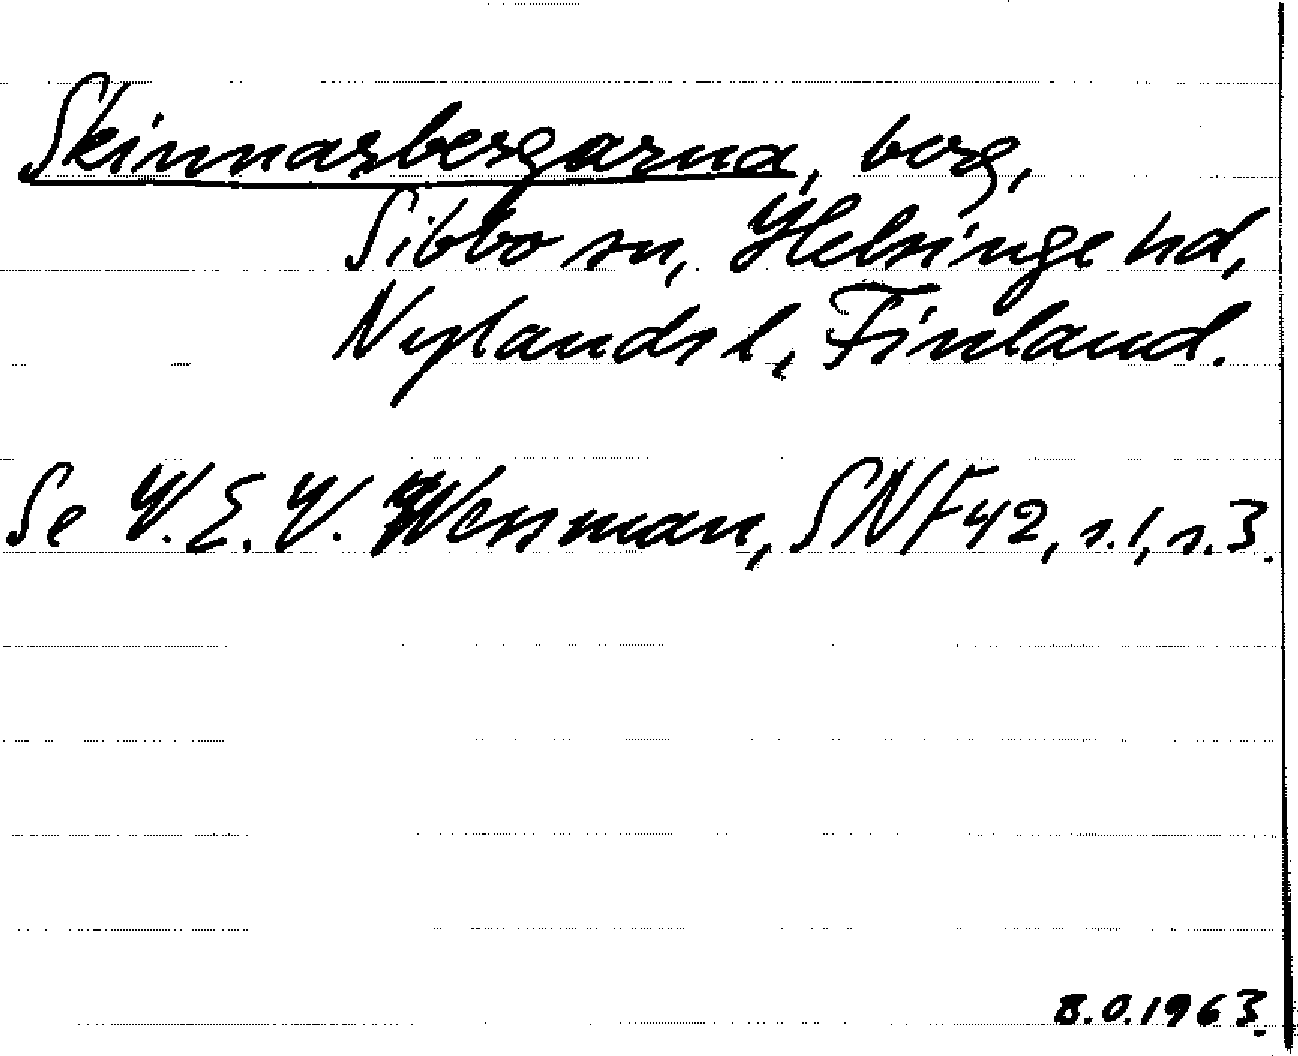 Skinnarbergarna, berg,
Sibbo sn, Helsinge hd,
Nylands l., Finland.
Se V. E. V. Wessman, SNF 42, s. 1, s. 3.
B.O. 1963.